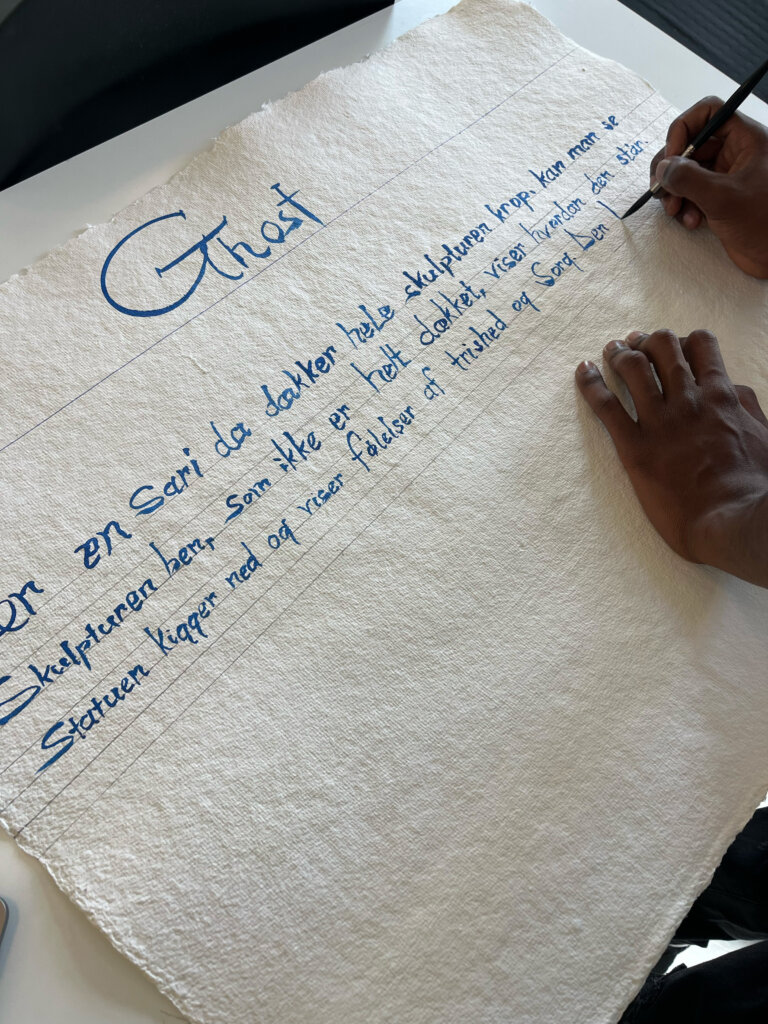 Ghost
er en Sari da dækker hele skulpturen krop. kan man se
Skulpturen ben, som ikke er helt dækket, viser hvordan den står
Statuen kigger ned og viser følelser af trished og Sorg Den